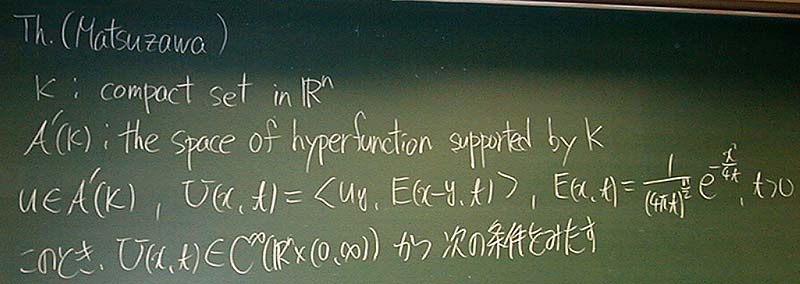 Th. (Matsuzawa)
K : compact set in ℝⁿ
A'(K) : the space of hyperfunction supported by K
u∈A'(K), U(x,t) = <u_y, E(x-y,t)>, E(x,t) = 1/(4πt)^{n/2} e^{-x²/4t}, t>0
このとき、U(x,t)∈C^∞(ℝⁿ×(0,∞)) かつ 次の条件をみたす